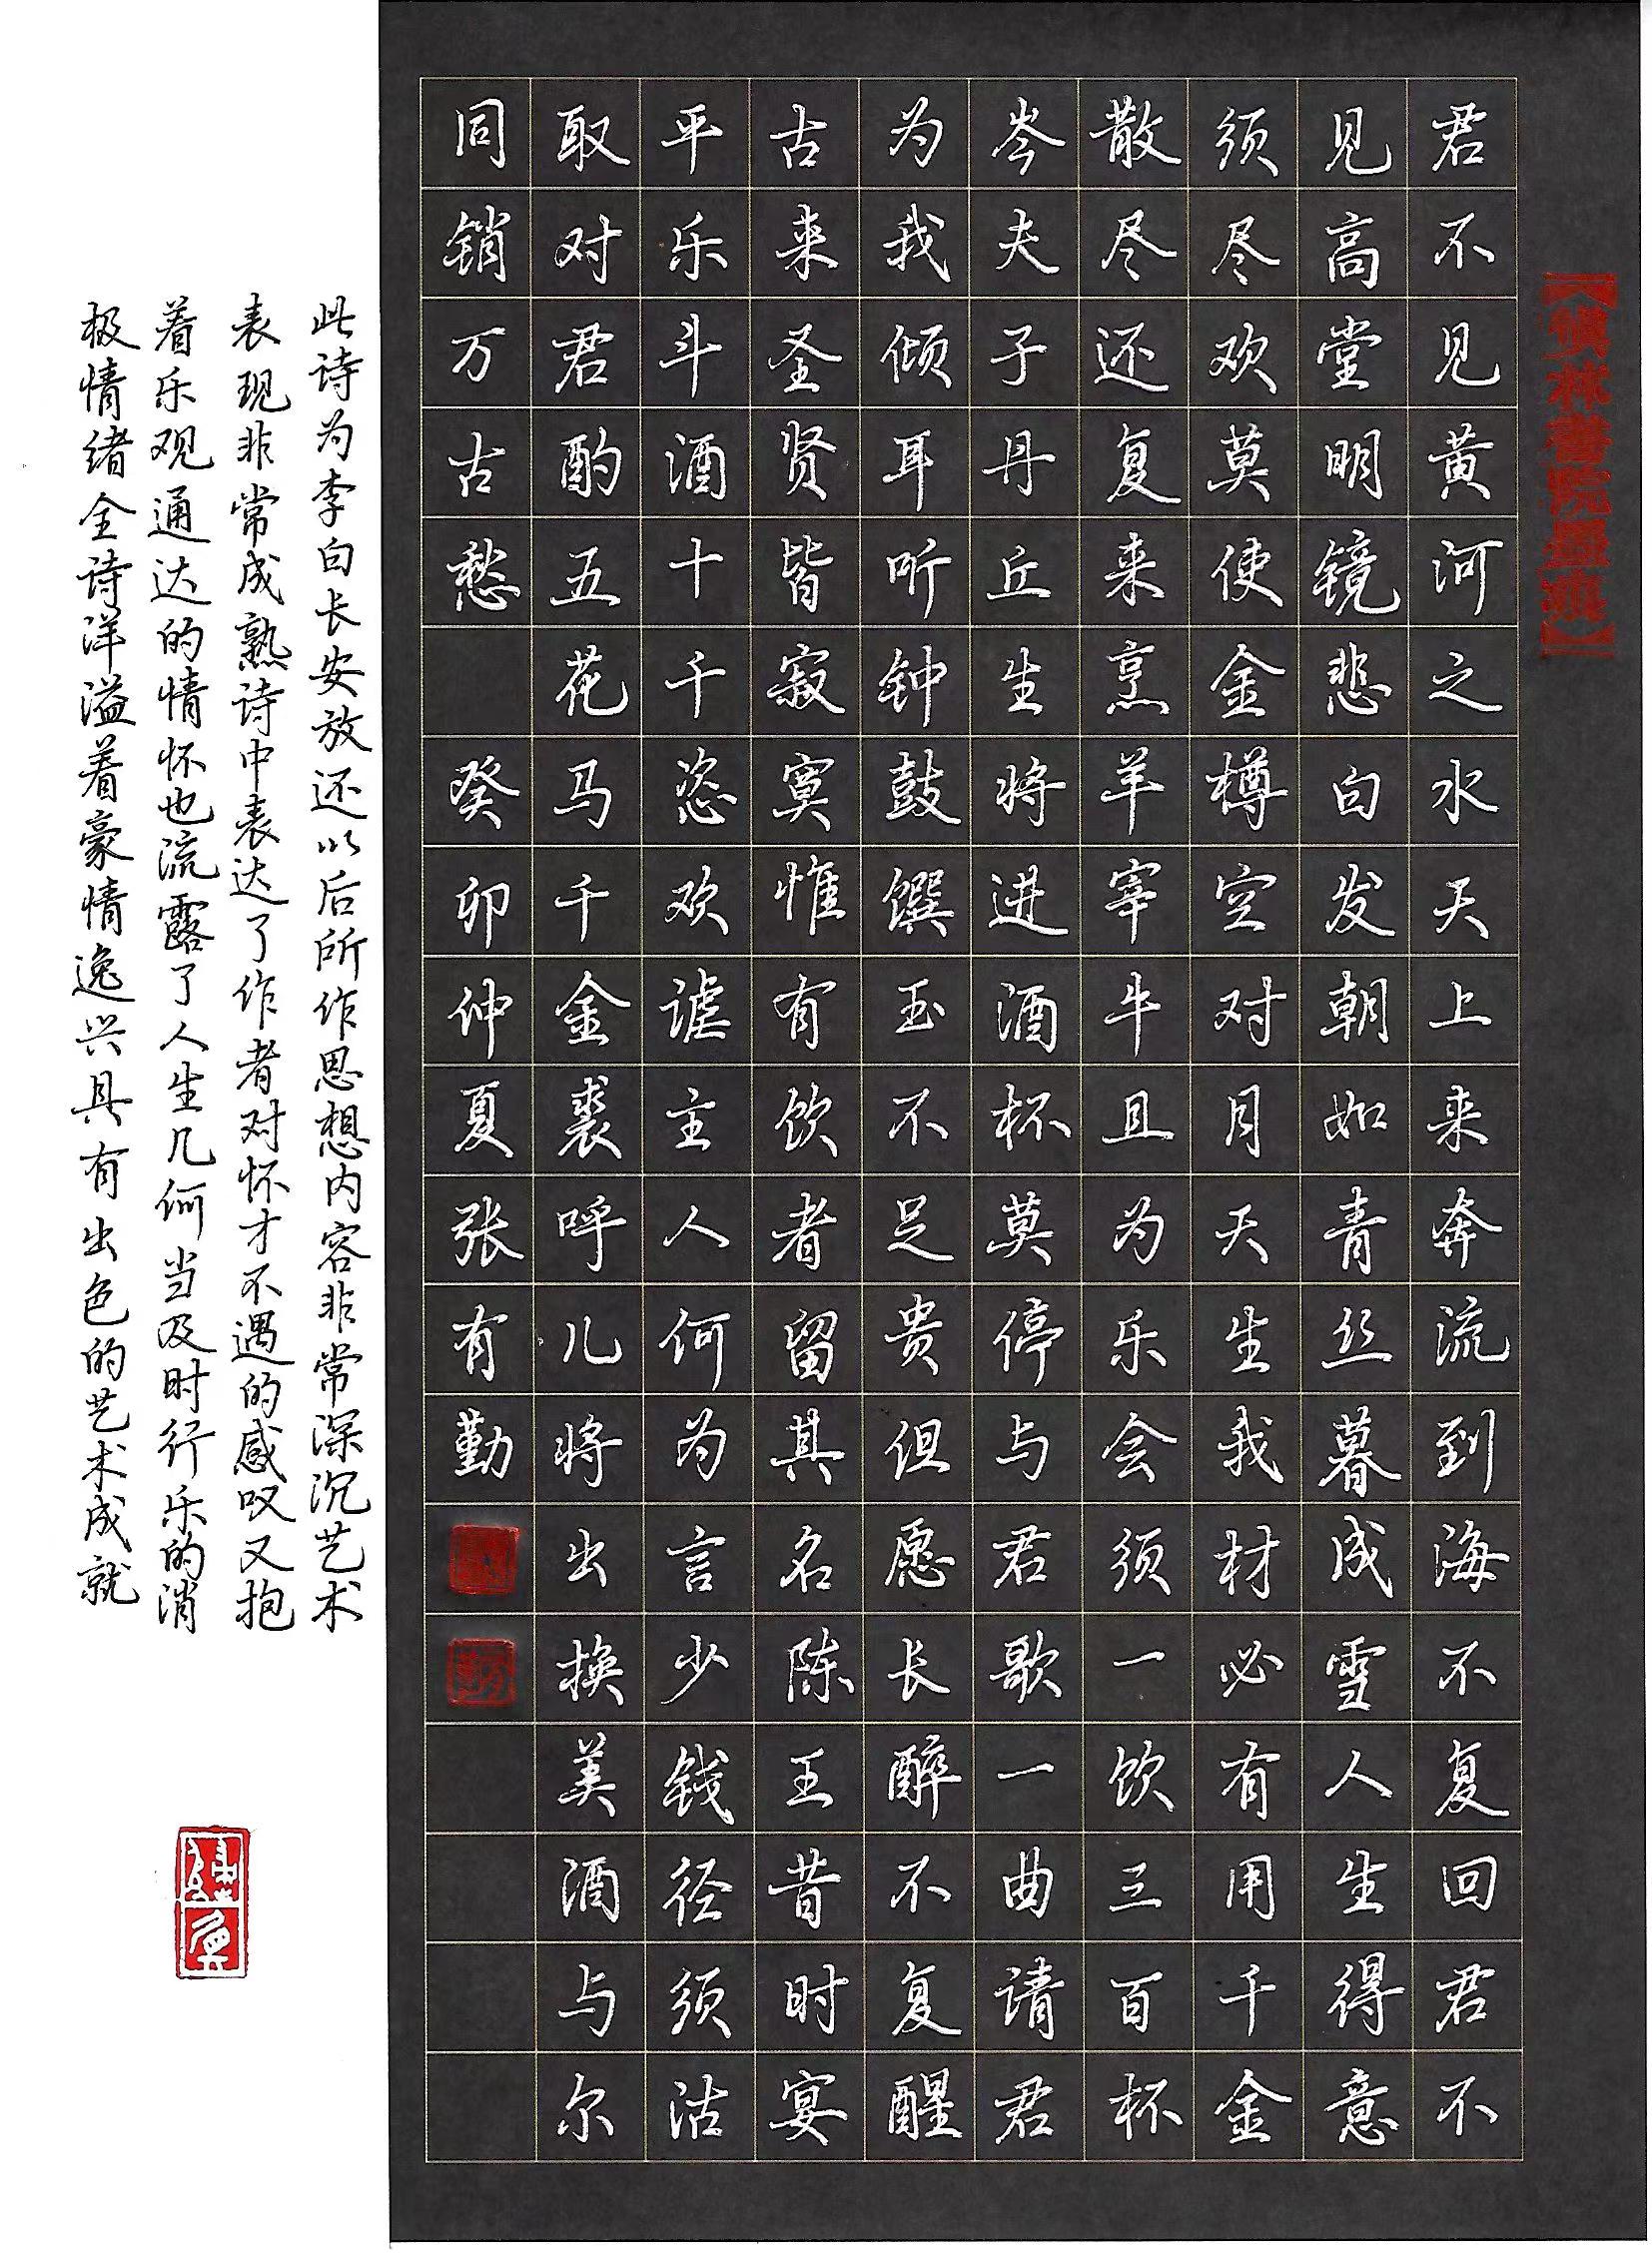 林書院墨
君不见黄河之水天上来奔流到海不复回君不
见高堂明镜悲白发朝如青丝暮成雪人生得意
须尽欢莫使金樽空对月天生我材必有用千金
散尽还复来烹羊宰牛且为乐会须一饮三百杯
岑夫子丹丘生将进酒杯莫停与君歌一曲请君
为我倾耳听钟鼓馔玉不足贵但愿长醉不复醒
古来圣贤皆寂寞惟有饮者留其名陈王昔时宴
平乐斗酒十千恣欢谑主人何为言少钱径须沽
取对君酌五花马千金裘呼儿将出换美酒与尔
同销万古愁 癸卯仲夏张有勤
此诗为李白长安放还以后所作思想内容非常深沉艺术
表现非常成熟诗中表达了作者对怀才不遇的感叹又抱
着乐观通达的情怀也流露了人生几何当及时行乐的消
极情绪全诗洋溢着豪情逸兴具有出色的艺术成就